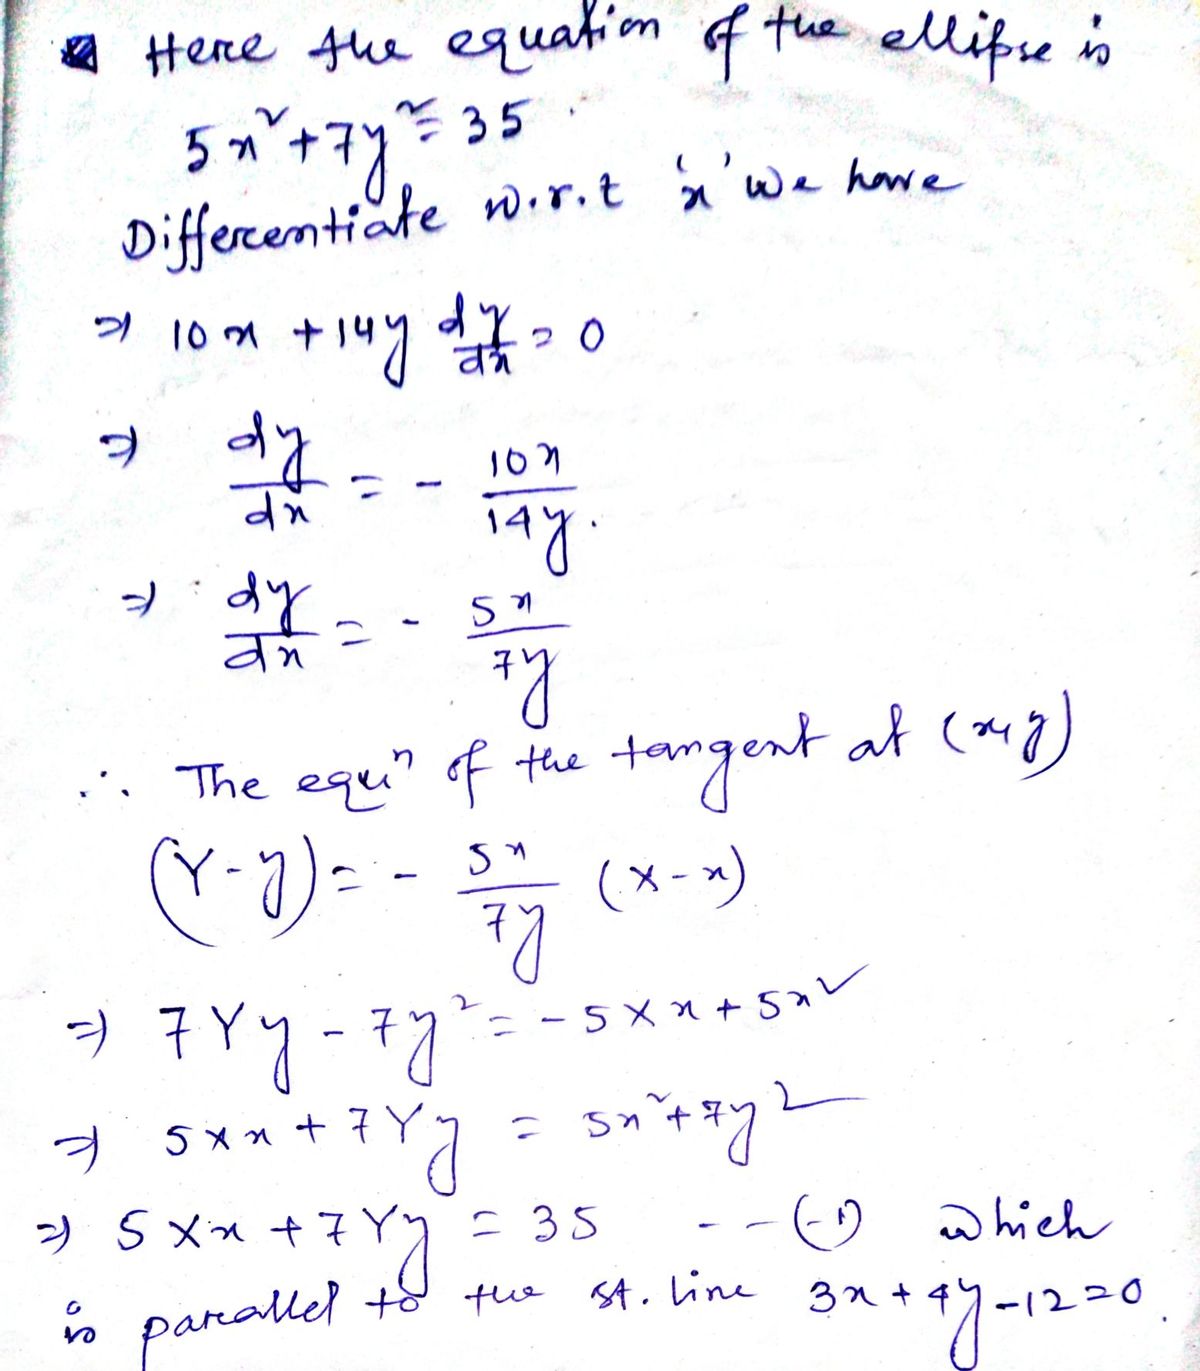 Here the equation of the ellipse is
5x² + 7y² = 35.
Differentiate w.r.t 'x' we have
⇒ 10x + 14y dy/dx = 0
⇒ dy/dx = - 10x/14y.
⇒ dy/dx = - 5x/7y
∴ The equⁿ of the tangent at (x, y)
(Y-y) = - 5x/7y (X-x)
⇒ 7Yy - 7y² = -5Xx + 5x²
⇒ 5Xx + 7Yy = 5x² + 7y²
⇒ 5Xx + 7Yy = 35 --- (1) which
is parallel to the st. line 3x + 4y - 12 = 0.